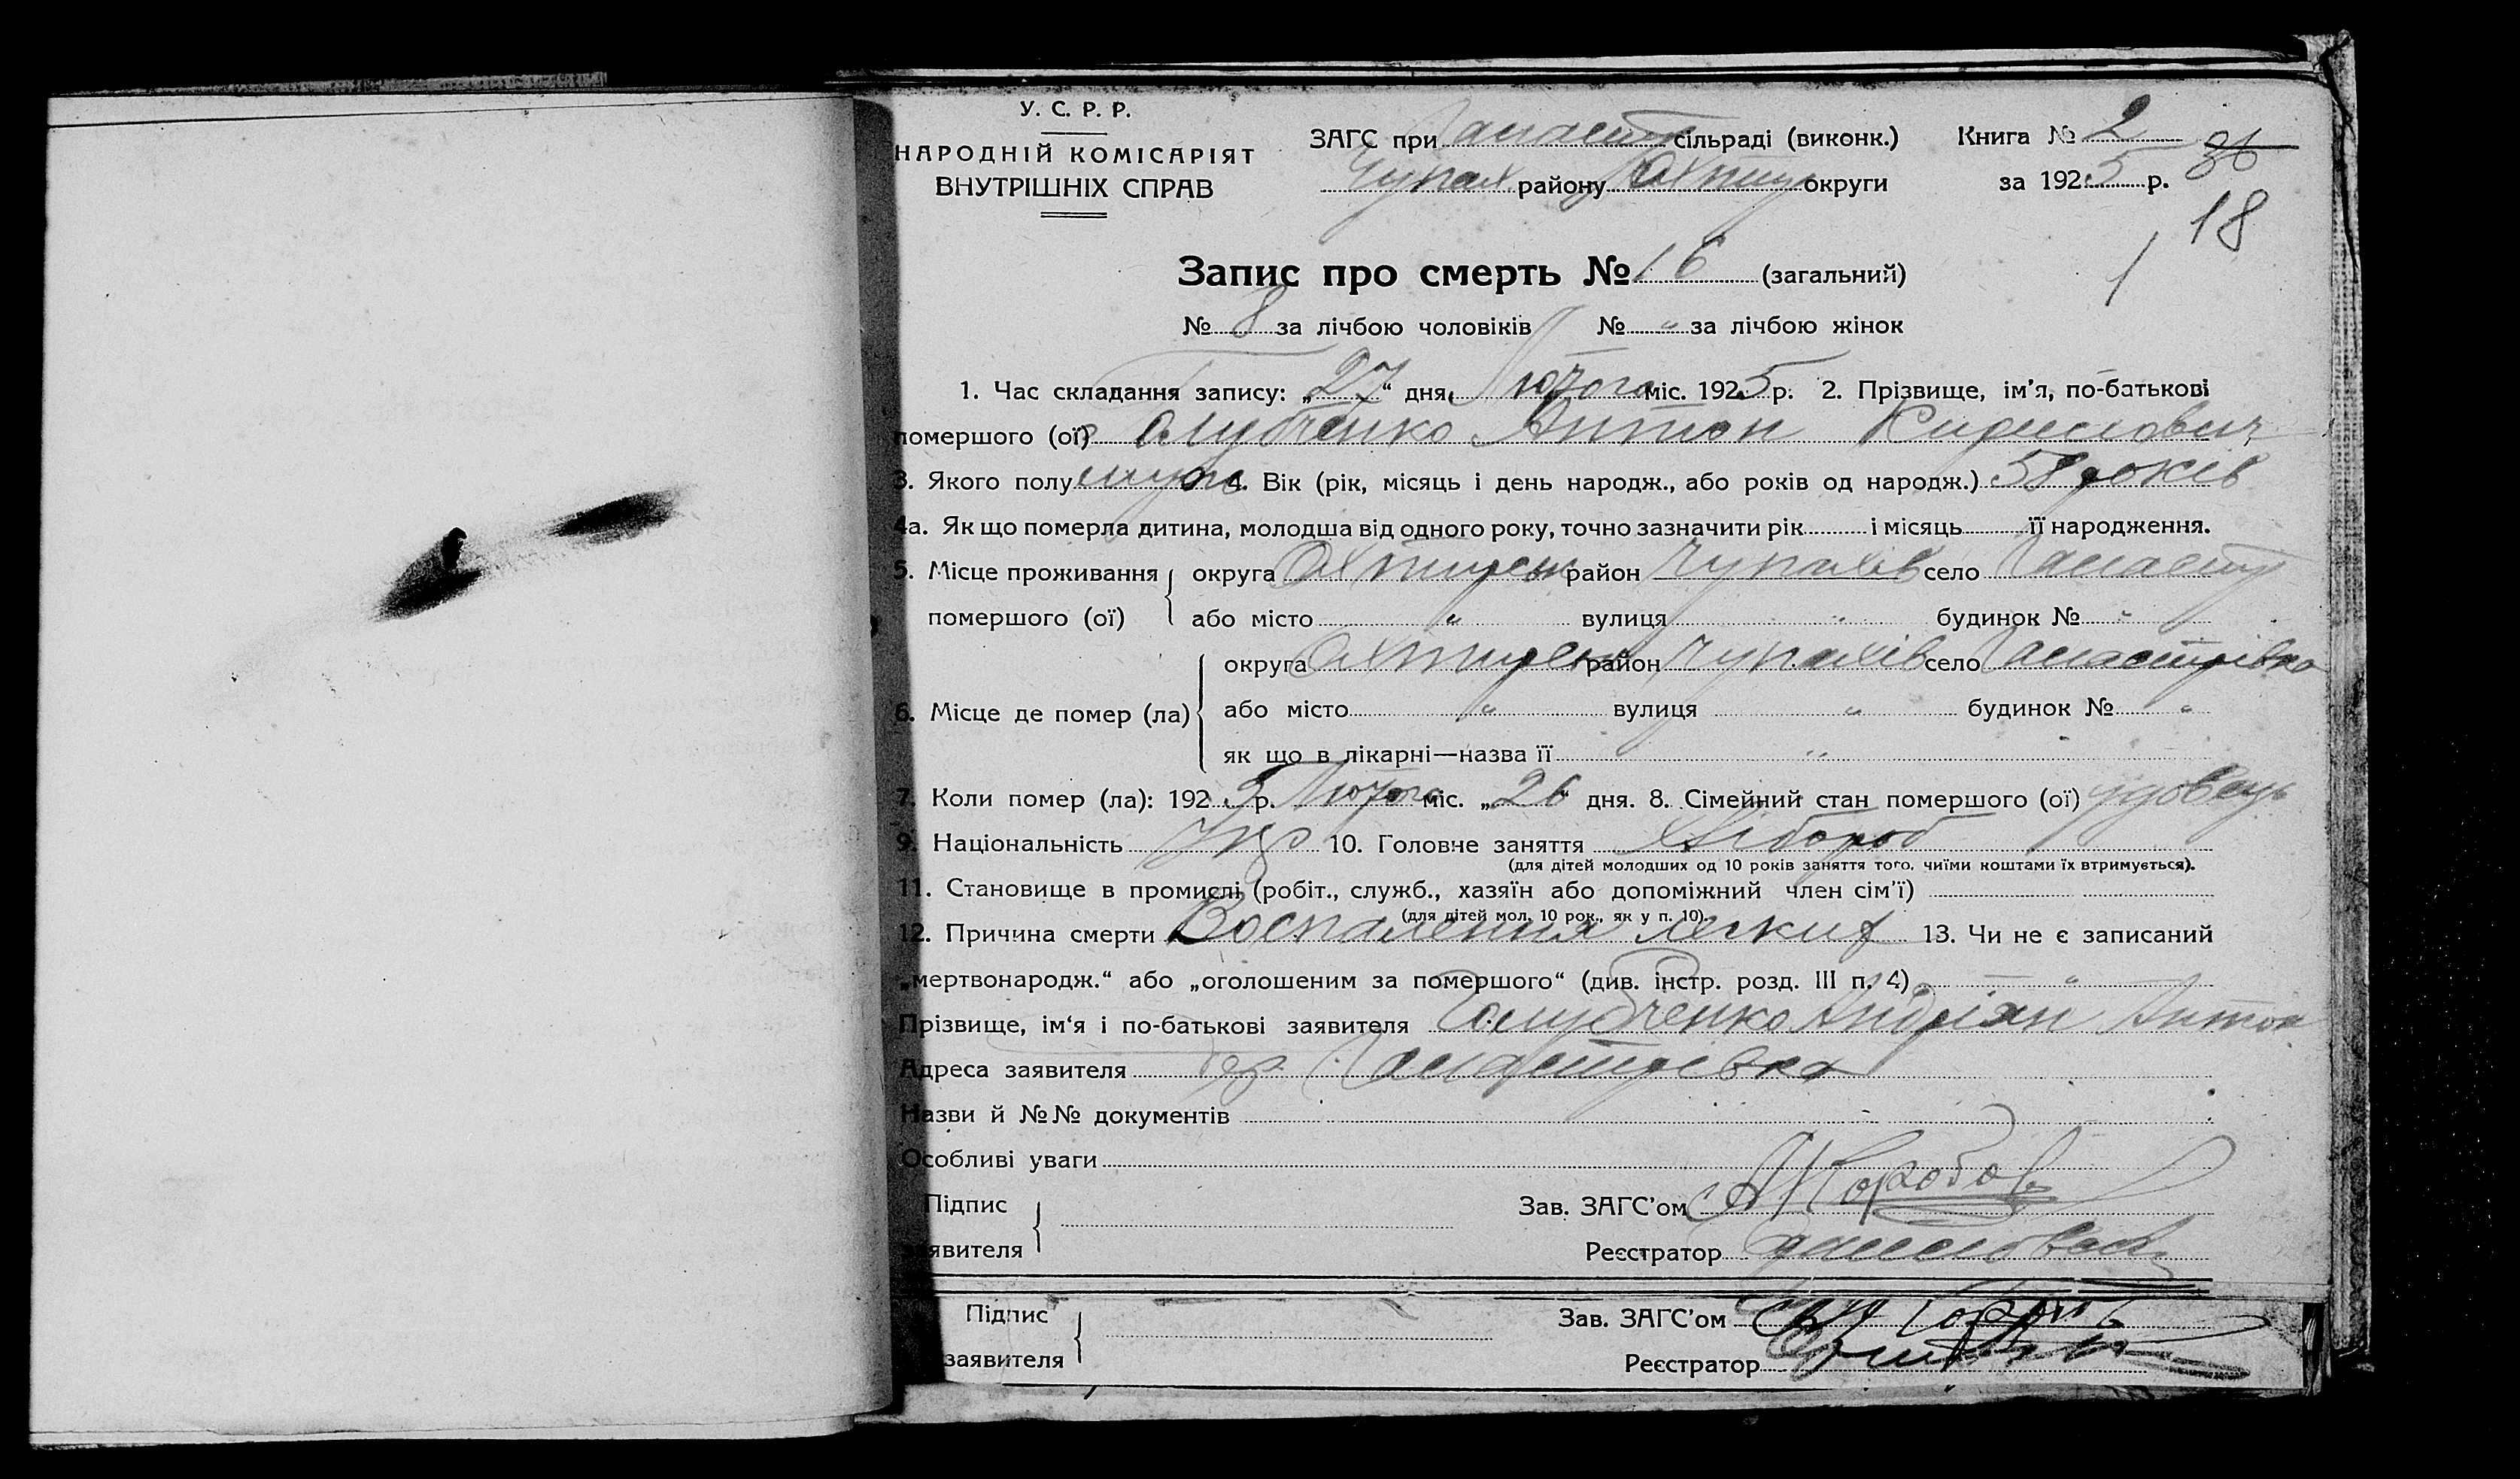 У. С. Р. Р.
НАРОДНІЙ КОМІСАРІЯТ
ВНУТРІШНІХ СПРАВ
ЗАГС при сільраді (виконк.)
Чупах району Охтир округи
Книга № 2
за 1925 р.
36
18
Запис про смерть № 16 (загальний)
№ 8 за лічбою чоловіків № " за лічбою жінок
1. Час складання запису: „27“ дня, Лютого міс. 1925 р. 2. Прізвище, ім'я, по-батькові
помершого (ої) Голубченко Антон Кирилович
3. Якого полу муж 4. Вік (рік, місяць і день народж., або років од народж.) 58 років
4а. Як що померла дитина, молодша від одного року, точно зазначити рік і місяць її народження.
5. Місце проживання помершого (ої) округа Охтирськ район Чупахів село
або місто " вулиця " будинок № "
6. Місце де помер (ла) округа Охтирськ район Чупахів село
або місто " вулиця " будинок № "
як що в лікарні—назва її "
7. Коли помер (ла): 1925 р. Лютого міс. „26“ дня. 8. Сімейний стан помершого (ої) удовець
9. Національність Укр 10. Головне заняття Хлібороб
(для дітей молодших од 10 років заняття того, чиїми коштами їх втримується).
11. Становище в промислі (робіт., служб., хазяїн або допоміжний член сім'ї)
(для дітей мол. 10 рок., як у п. 10).
12. Причина смерти Воспаления легких 13. Чи не є записаний
„мертвонародж.“ або „оголошеним за помершого“ (див. інстр. розд. III п. 4) "
Прізвище, ім'я і по-батькові заявителя Голубченко Андріян Антон
Адреса заявителя
Назви й №№ документів
Особливі уваги
Підпис заявителя
Зав. ЗАГС'ом
Реєстратор
Підпис заявителя
Зав. ЗАГС'ом
Реєстратор